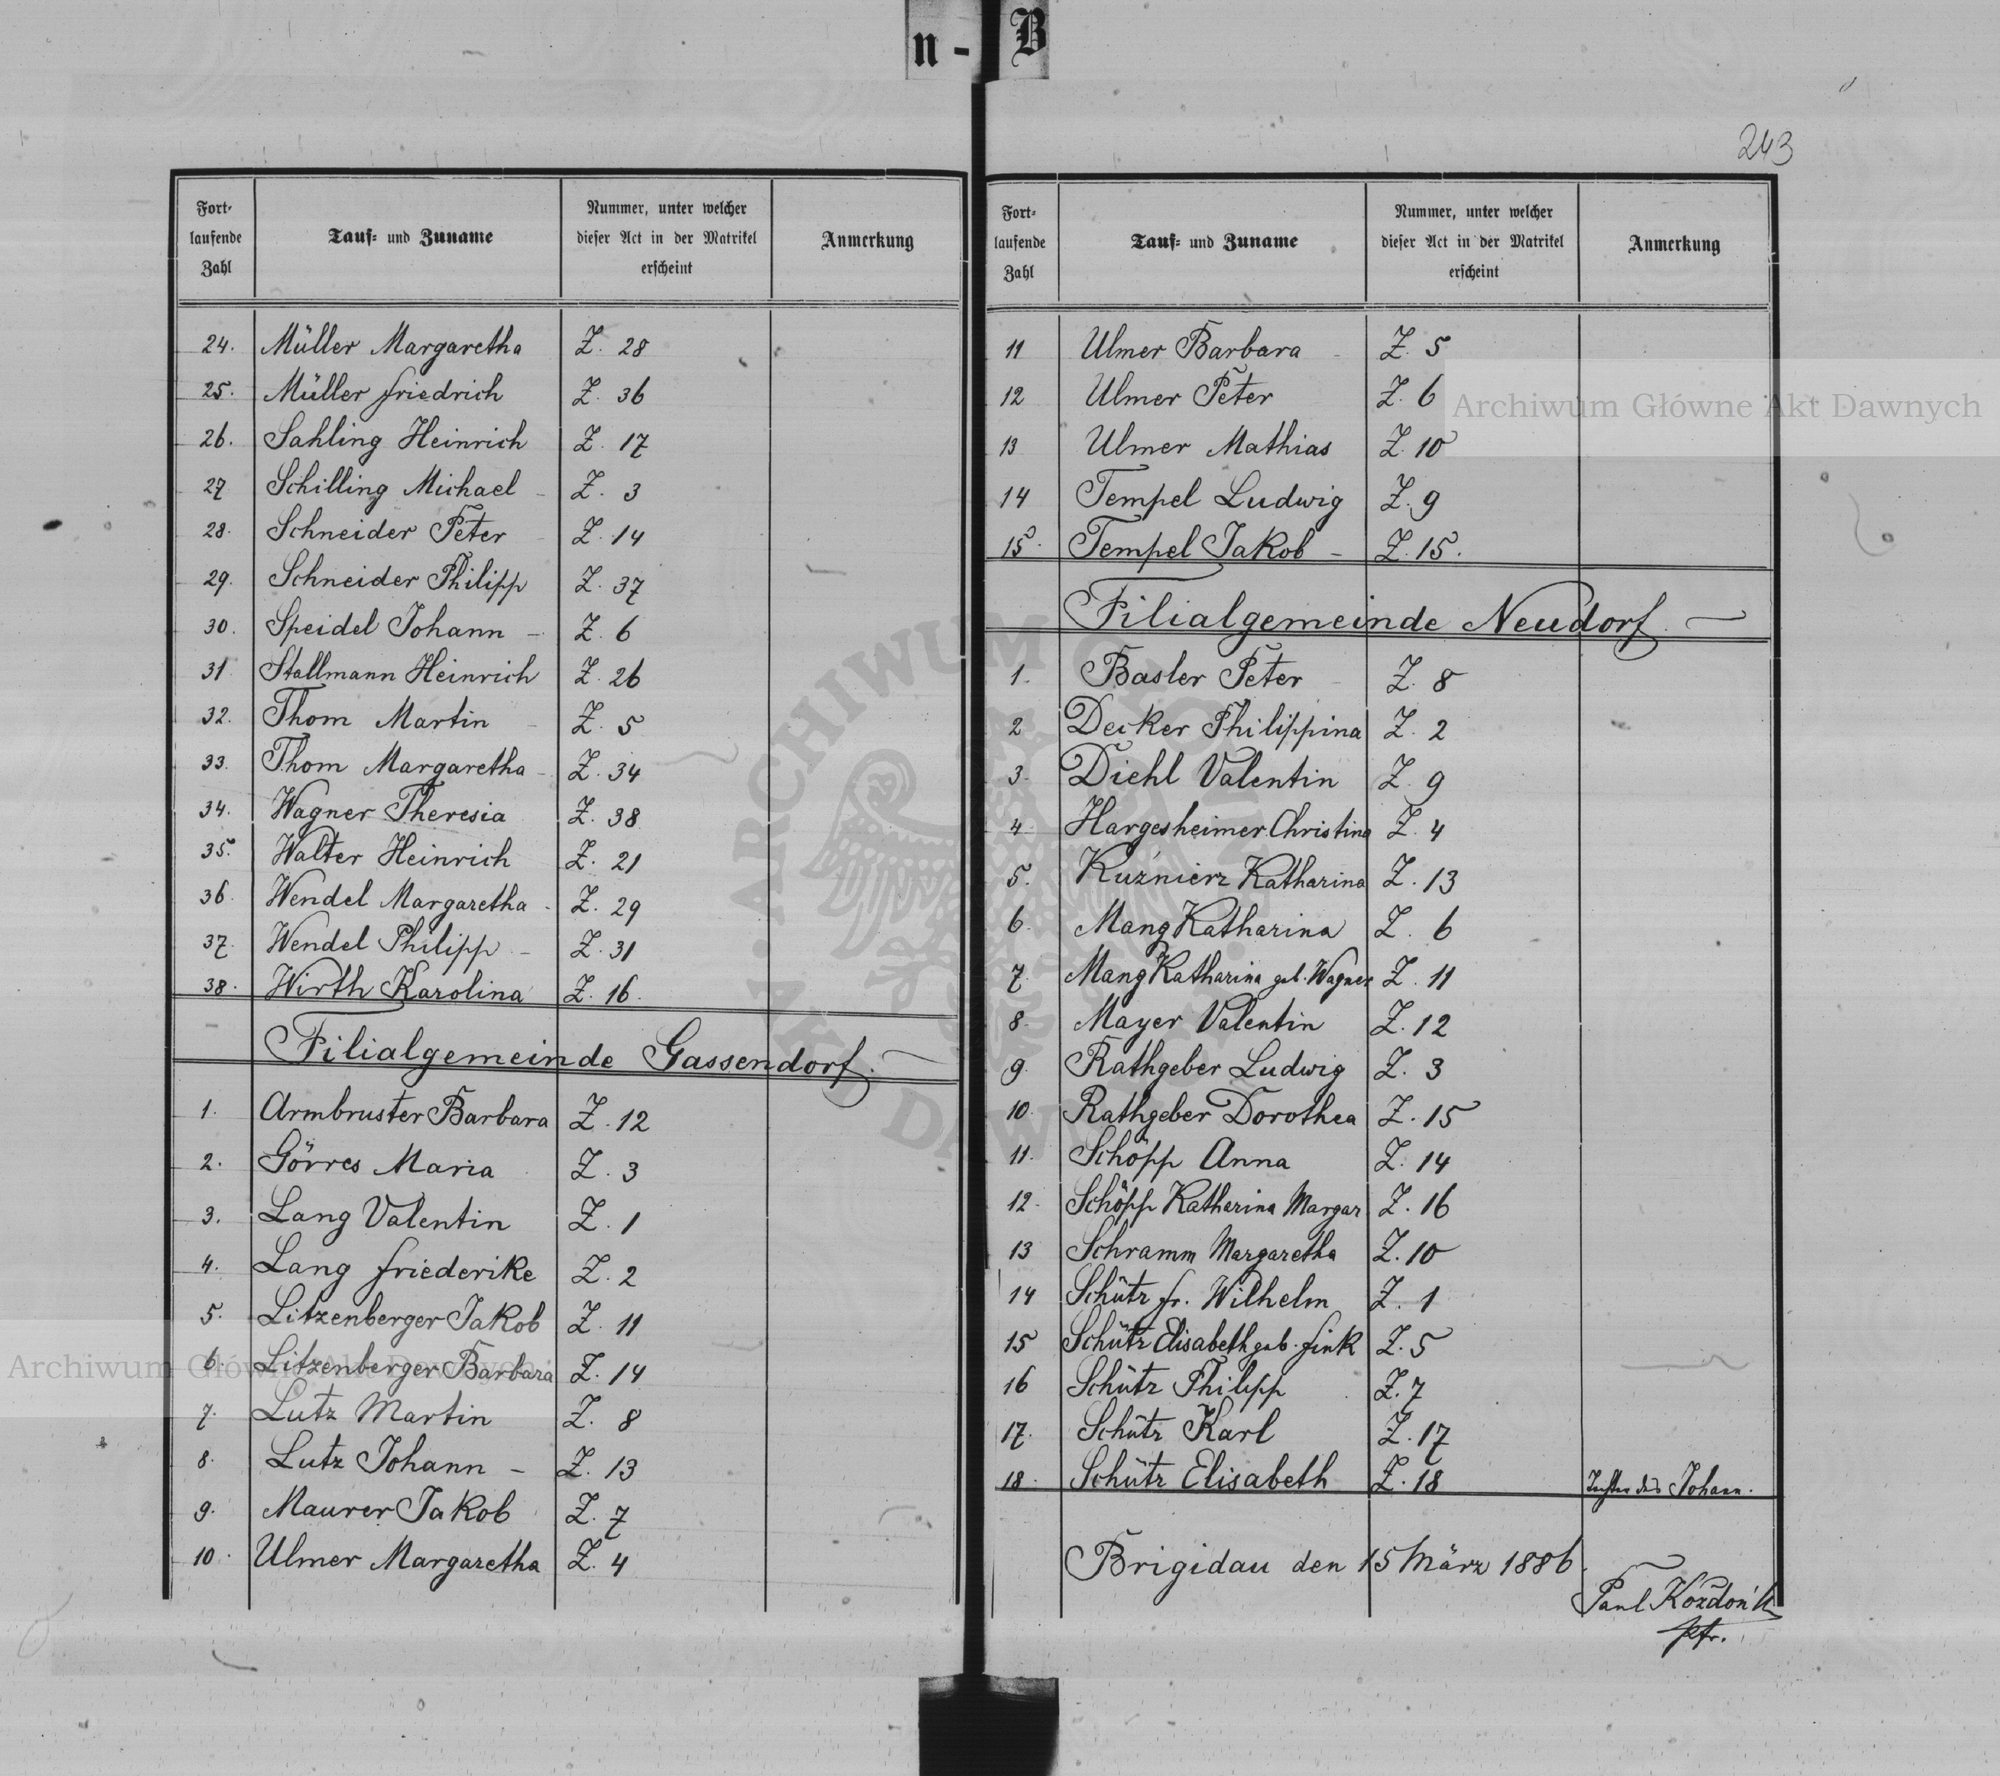 n - B
243
Fort-
laufende
Zahl
Tauf- und Zuname
Nummer, unter welcher
dieser Act in der Matrikel
erscheint
Anmerkung
24. Müller Margaretha Z. 28
25. Müller Friedrich Z. 36
26. Sahling Heinrich Z. 17
27 Schilling Michael - Z. 3
28. Schneider Peter Z. 14
29. Schneider Philipp Z. 37
30. Speidel Johann - Z. 6
31 Stallmann Heinrich Z. 26
32. Thom Martin Z. 5
33. Thom Margaretha - Z. 34
34. Wagner Theresia Z. 38
35. Walter Heinrich Z. 21
36. Wendel Margaretha - Z. 29
37. Wendel Philipp - Z. 31
38. Wirth Karolina Z. 16.
Filialgemeinde Gassendorf.
1. Armbruster Barbara Z. 12
2. Görres Maria Z. 3
3. Lang Valentin Z. 1
4. Lang Friederike Z. 2
5. Litzenberger Jakob Z. 11
6. Litzenberger Barbara Z. 14
7. Lutz Martin Z. 8
8. Lutz Johann - Z. 13
9. Maurer Jakob Z. 7
10. Ulmer Margaretha Z. 4
Fort-
laufende
Zahl
Tauf- und Zuname
Nummer, unter welcher
dieser Act in der Matrikel
erscheint
Anmerkung
11 Ulmer Barbara Z. 5
12 Ulmer Peter Z. 6
13 Ulmer Mathias Z. 10
14 Tempel Ludwig Z. 9
15. Tempel Jakob - Z. 15.
Filialgemeinde Neudorf.
1. Basler Peter Z. 8
2 Decker Philippina Z. 2
3. Diehl Valentin Z. 9
4 Hargesheimer Christina Z. 4
5. Kuźnierz Katharina Z. 13
6. Mang Katharina Z. 6
7. Mang Katharina geb. Wagner Z. 11
8. Mayer Valentin Z. 12
9. Rathgeber Ludwig Z. 3
10. Rathgeber Dorothea Z. 15
11. Schöpp Anna Z. 14
12. Schöpp Katharina Margar Z. 16
13 Schramm Margaretha Z. 10
14 Schütz Fr. Wilhelm Z. 1
15 Schütz Elisabeth geb. Fink Z. 5
16 Schütz Philipp Z. 7
17. Schütz Karl Z. 17
18. Schütz Elisabeth Z. 18 Tochter des Johann.
Brigidau den 15 März 1886.
Paul Kozdoń
Pfr.
Archiwum Główne Akt Dawnych
Archiwum Główne Akt Dawnych
ARCHIWUM GŁÓWNE AKT DAWNYCH